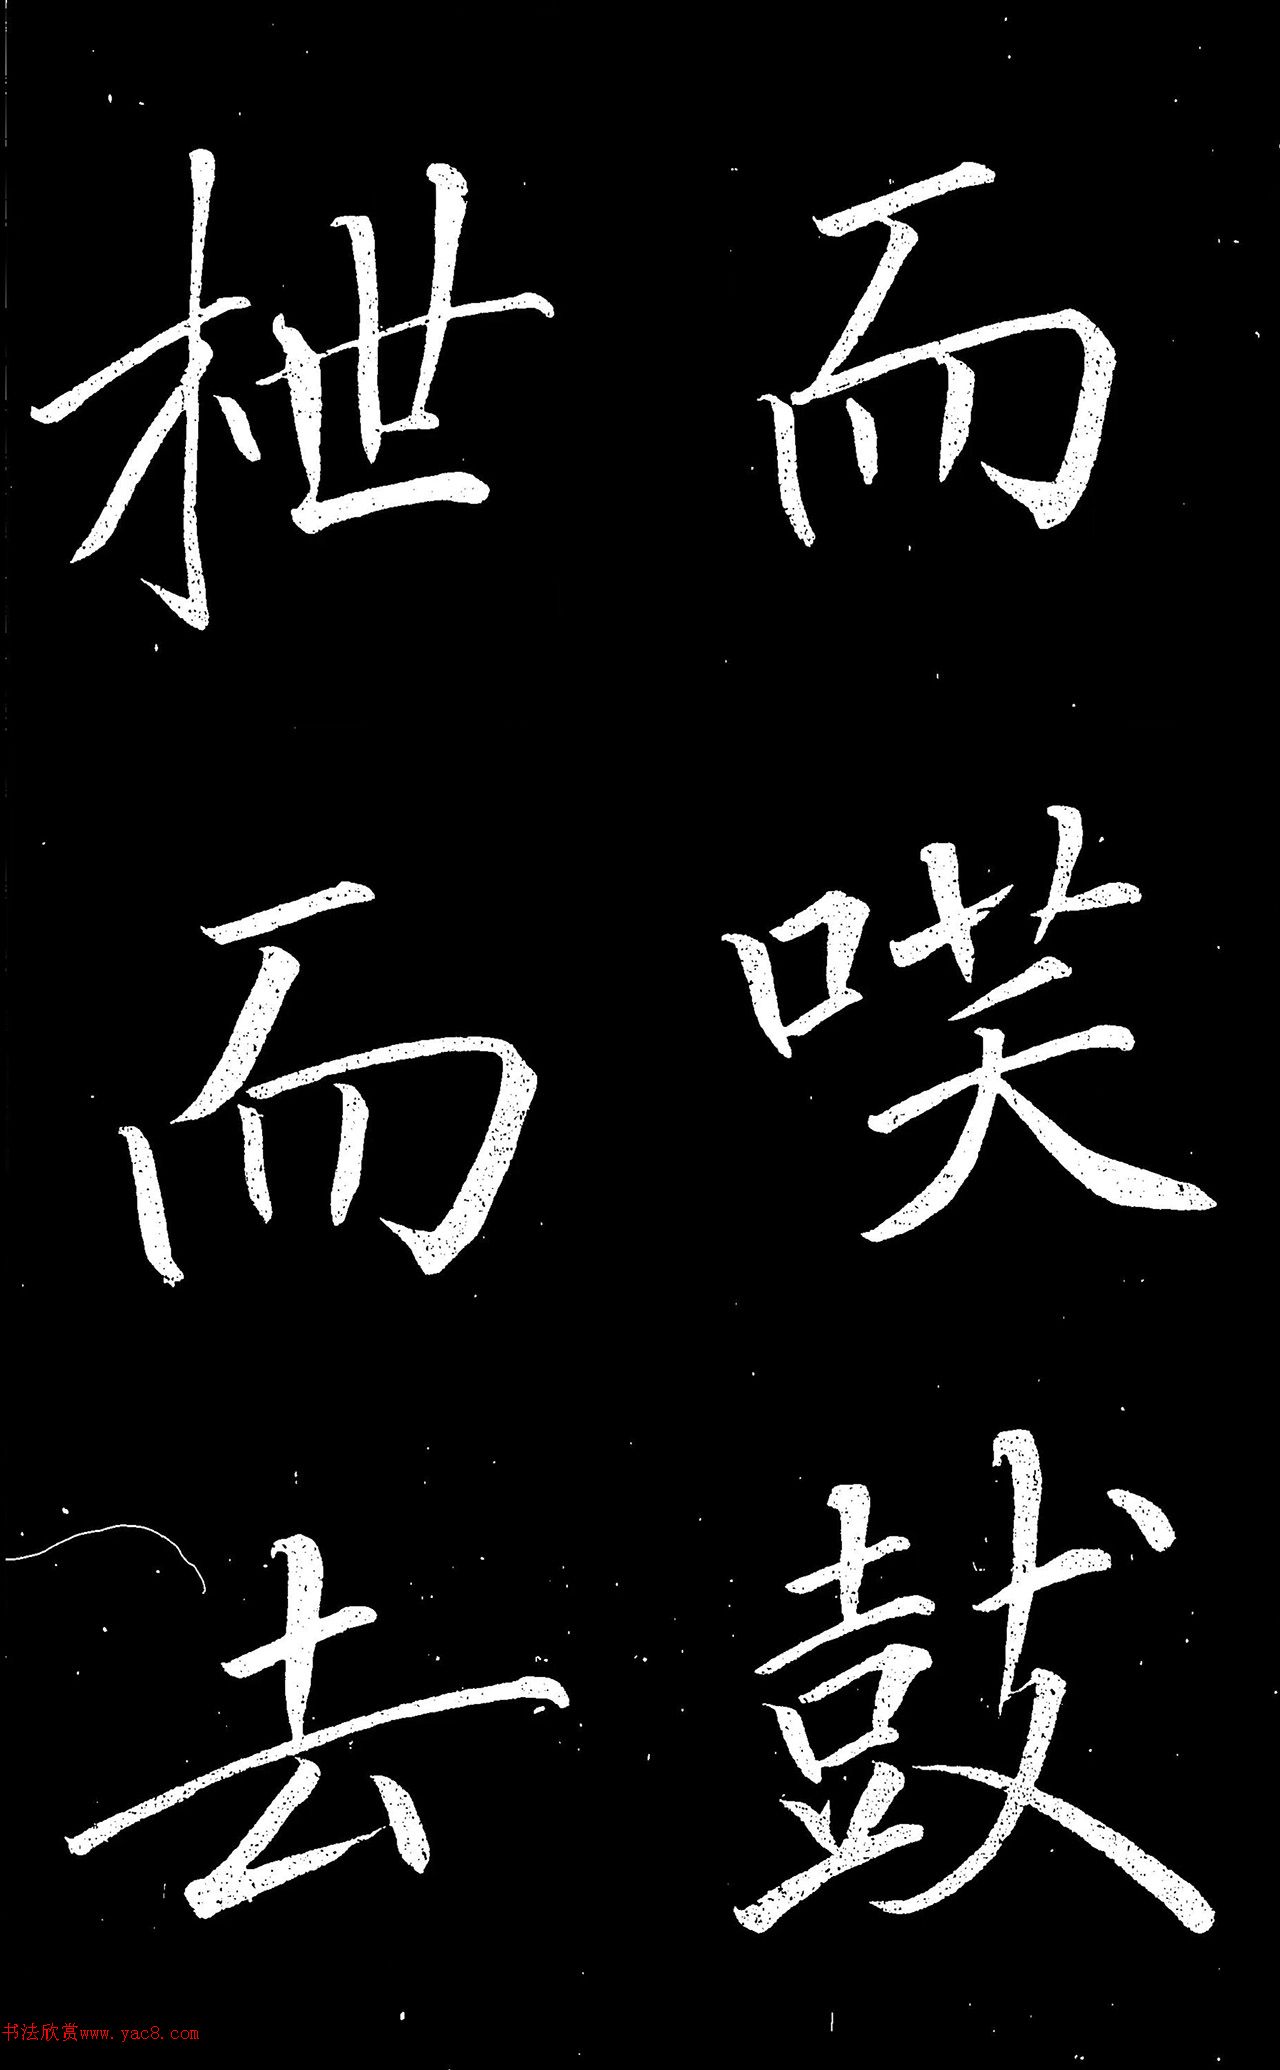 而㗛鼓
枻而去
书法欣赏www.yac8.com